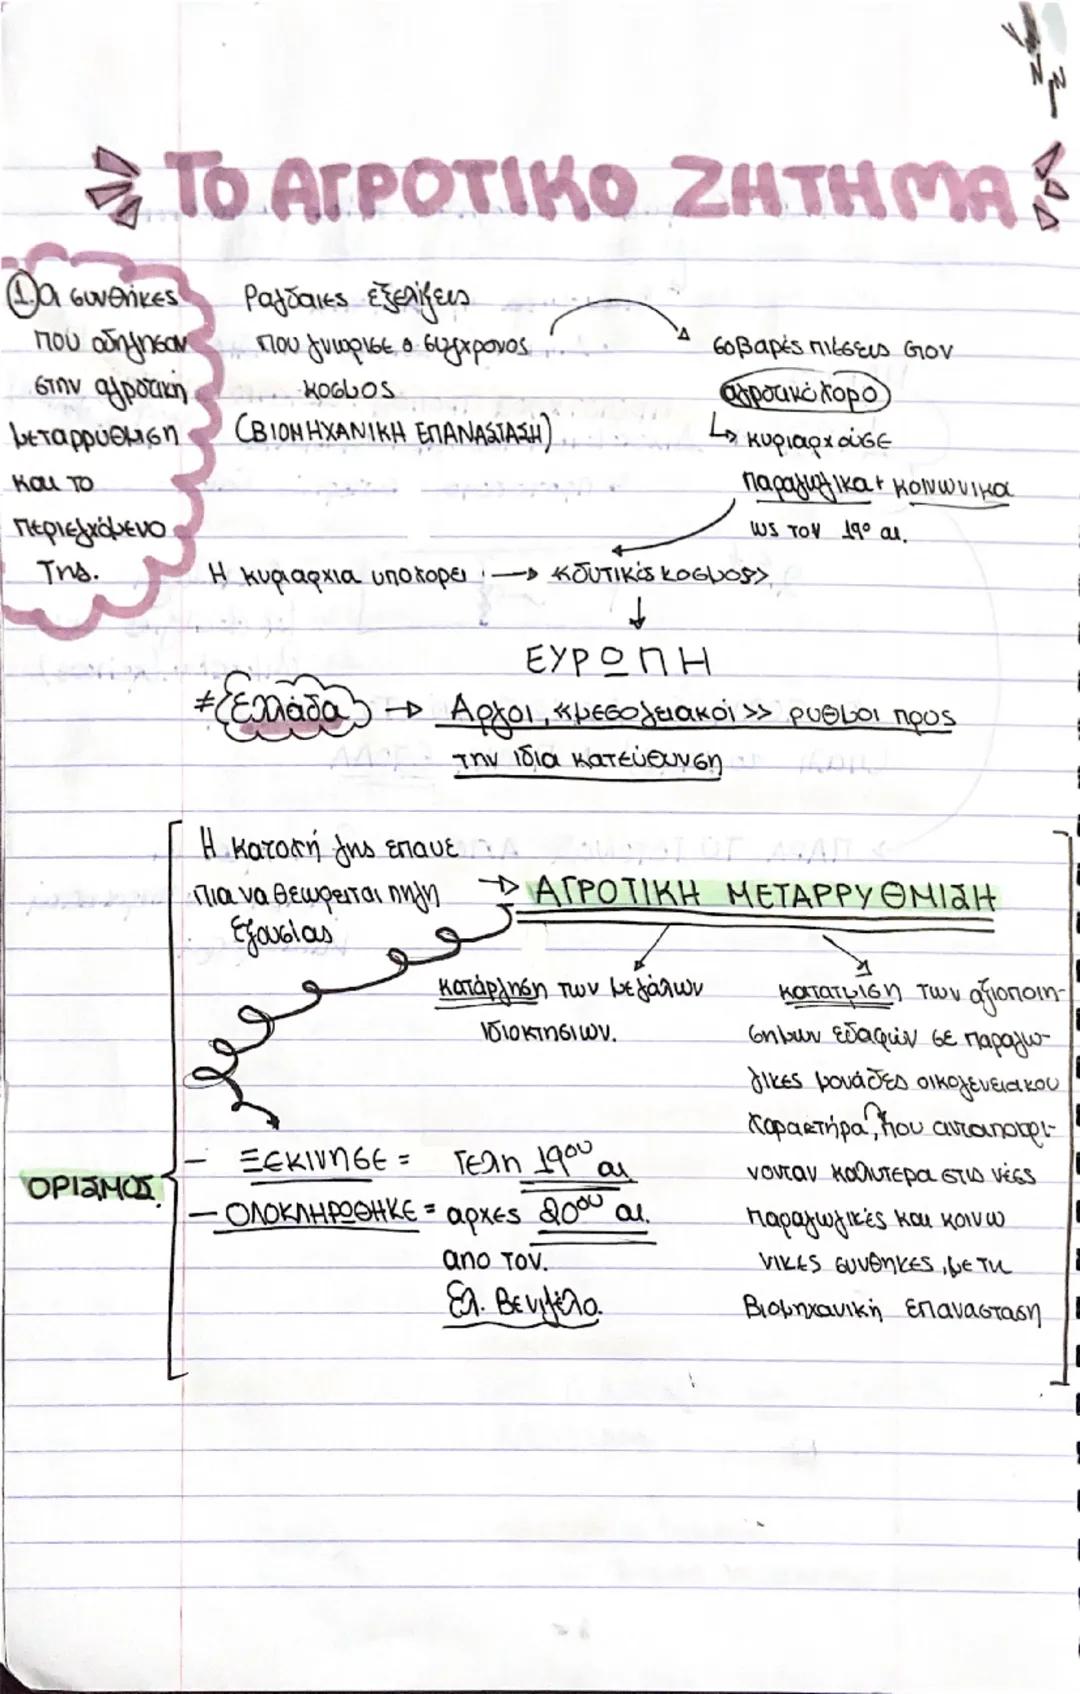 ΤΟ ΑΓΡΟΤΙΚΟ ΖΗΤΗΜΑ
1. Οι συνθήκες
που οδήγησαν
στην αγροτική
μεταρρύθμιση
και το
περιεχόμενο
της.
Ραγδαιες εξελίξεις
που γνωρισε ο σύγχρονος
κοσμος
(ΒΙΟΜΗΧΑΝΙΚΗ ΕΠΑΝΑΣΤΑΣΗ)
σοβαρές πιέσεις στον
αγροτικό χορο
κυριαρχούσε
παραγωγικα + κοινωνικα
ως τον 19ο αι.
Η κυριαρχια υποχορει → «δυτικός κοσμος»
ΕΥΡΩΠΗ
≠ Ελλάδα → Αργοι, «μεσογειακοί» ρυθμοι προς
την ιδια κατεύθυνση
Η κατοχή γης επαυε
πια να θεωρειται πηγη
εξουσιας
→ ΑΓΡΟΤΙΚΗ ΜΕΤΑΡΡΥΘΜΙΣΗ
κατάργηση των μεγάλων
ιδιοκτησιων.
κατατμιση των αξιοποιη-
σημων εδαφών σε παραγω-
γικες μονάδες οικογενειακου
χαρακτήρα, που ανταποκρι-
νονταν καλυτερα στις νέες
παραγωγικές και κοινω
νικες συνθηκες, με τη
Βιομηχανική επανασταση
ΟΡΙΣΜΟΣ.
— ΞΕΚΙΝΗΣΕ = Τελη 19ου αι
— ΟΛΟΚΛΗΡΩΘΗΚΕ = αρχες 20ου αι.
απο τον.
Ελ. Βενιζέλο.